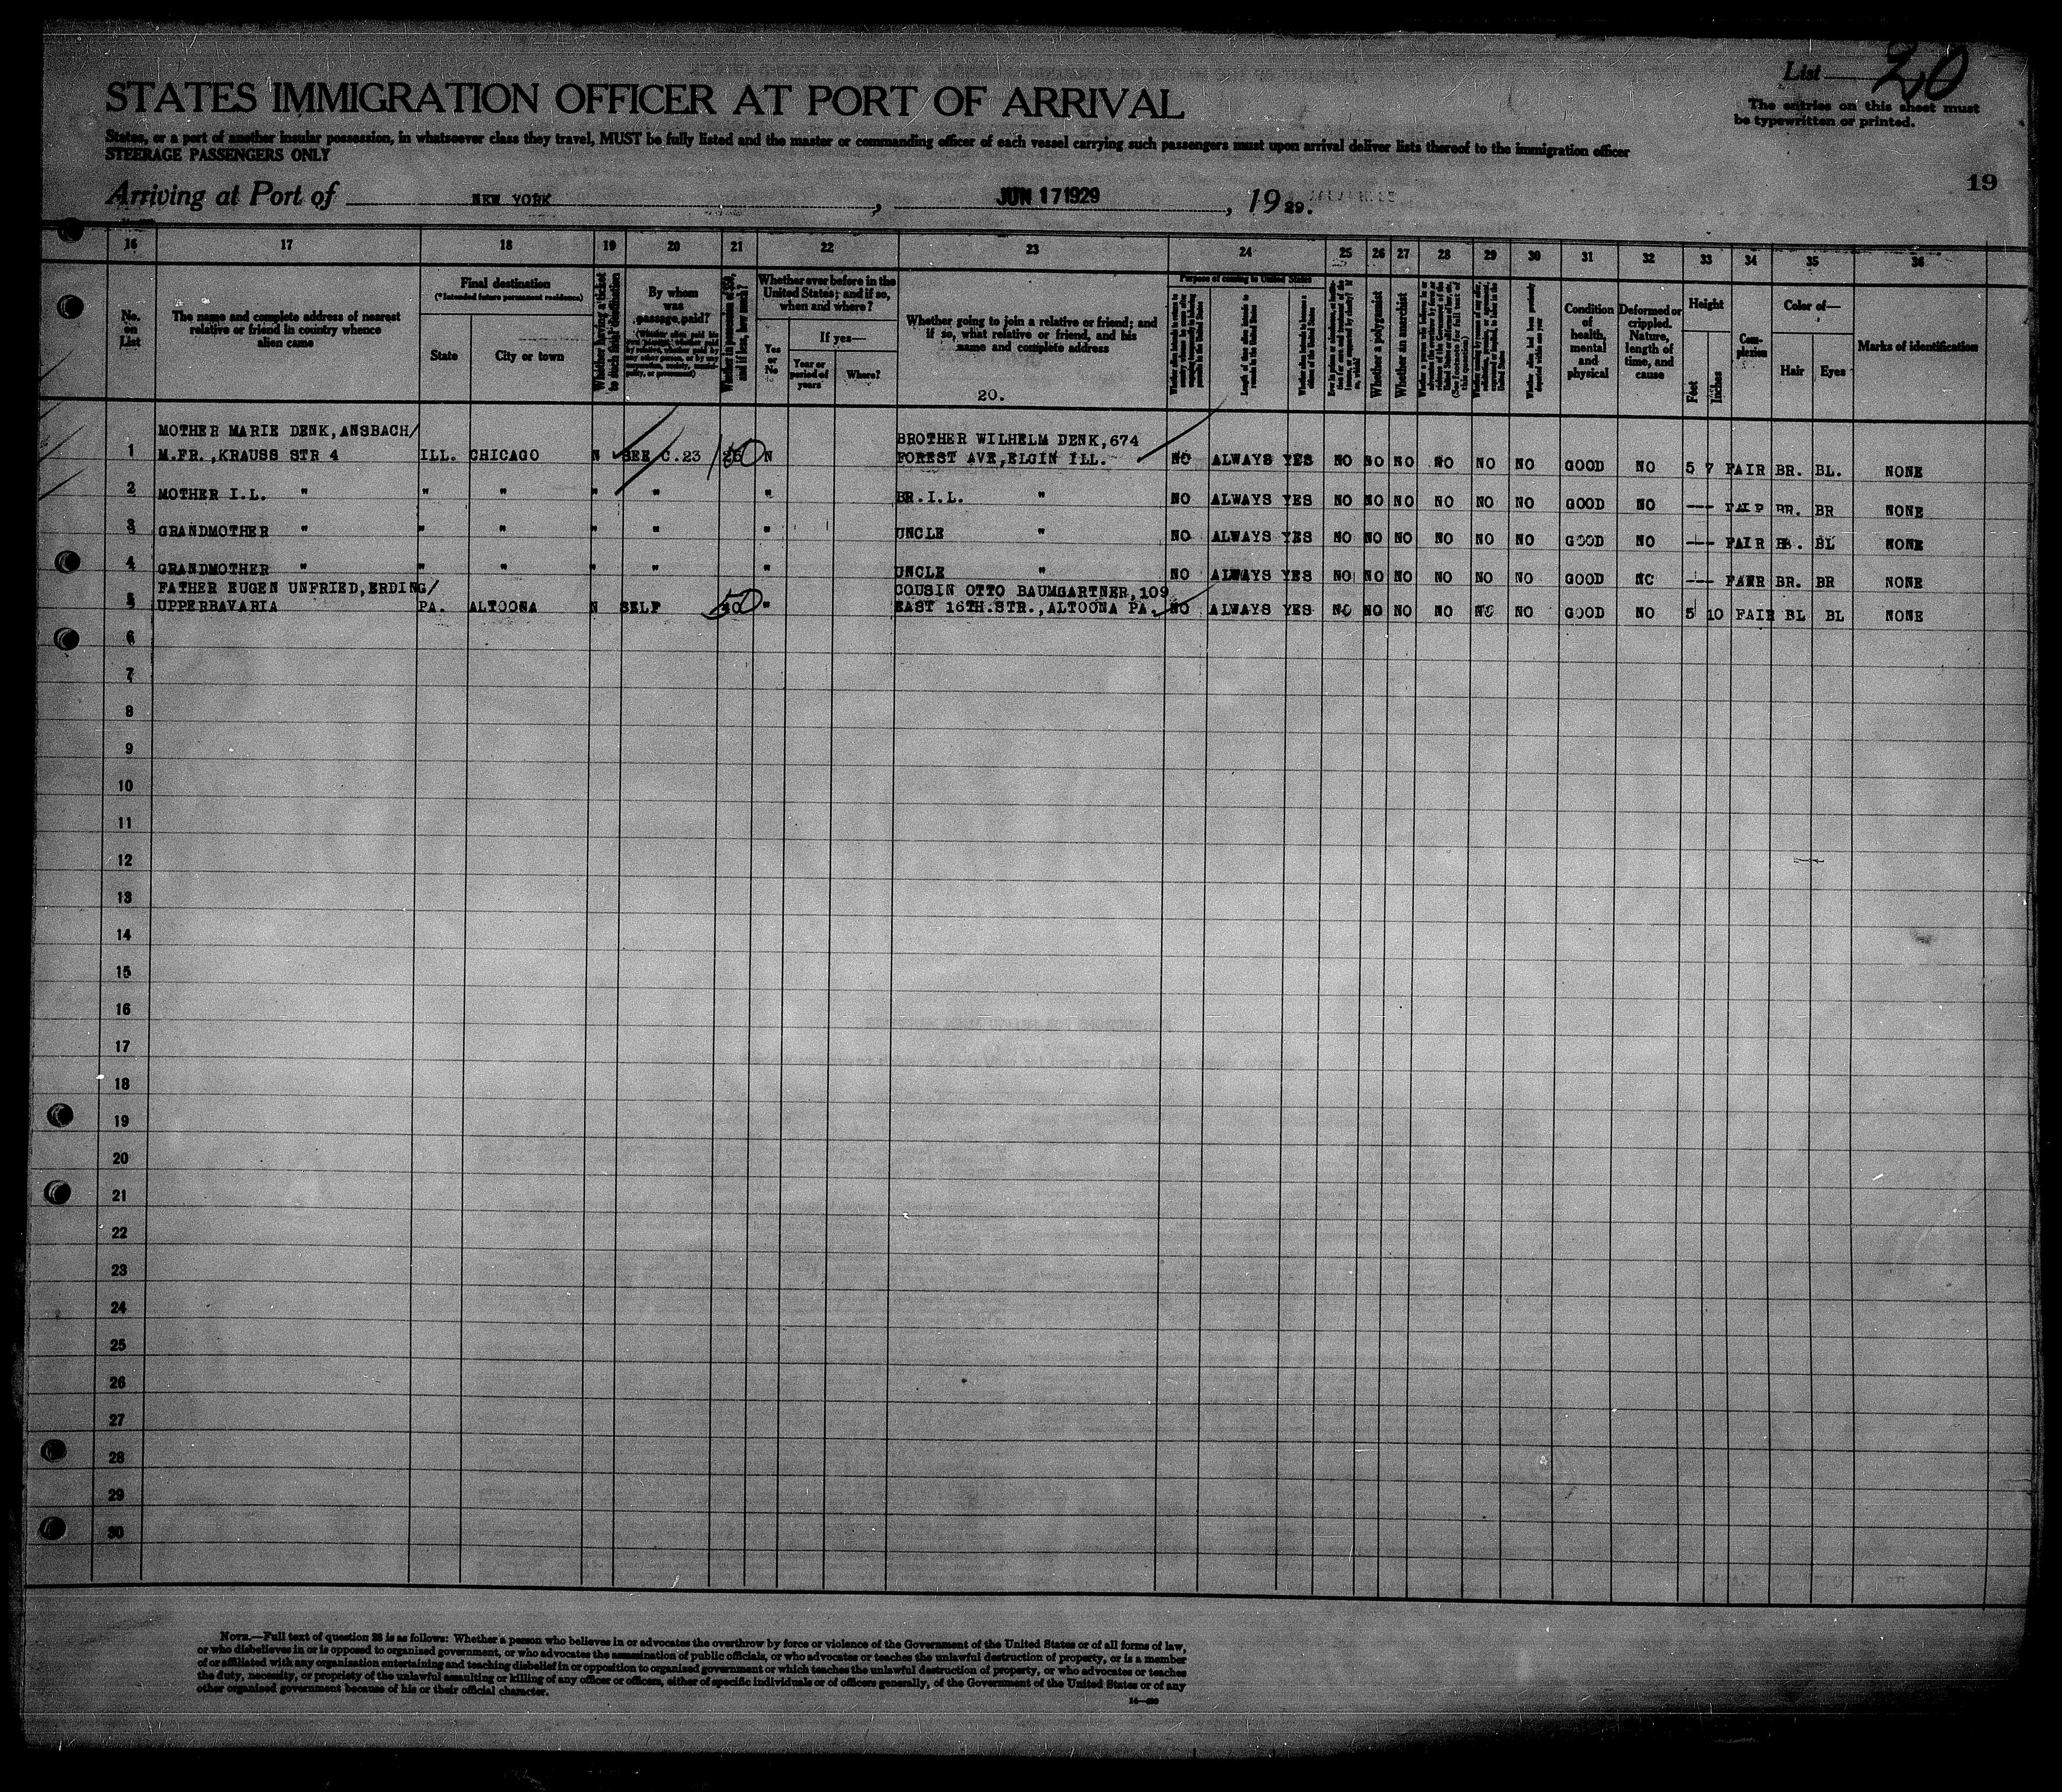 List 20
The entries on this sheet must
be typewritten or printed.
STATES IMMIGRATION OFFICER AT PORT OF ARRIVAL
States, or a part of another insular possession, in whatsoever class they travel, MUST be fully listed and the master or commanding officer of each vessel carrying such passengers must upon arrival deliver lists thereof to the immigration officer
STEERAGE PASSENGERS ONLY
19
Arriving at Port of NEW YORK, JUN 17 1929, 19 29.
16 17 18 19 20 21 22 23 24 25 26 27 28 29 30 31 32 33 34 35 36
No.
on
List
The name and complete address of nearest
relative or friend in country whence
alien came
Final destination
(*Intended future permanent residence)
State City or town
Whether having a ticket
to such final destination
By whom
was
passage paid?
Whether ever before in the
United States; and if so,
when and where?
Yes
or
No
If yes—
Year or
period of
years
Where?
Whether going to join a relative or friend; and
if so, what relative or friend, and his
name and complete address
20.
Purpose of coming to United States
Whether a polygamist
Whether an anarchist
Condition
of
health,
mental
and
physical
Deformed or
crippled.
Nature,
length of
time, and
cause
Height
Feet
Inches
Com-
plexion
Color of—
Hair Eyes
Marks of identification
MOTHER MARIE DENK, ANSBACH/ BROTHER WILHELM DENK, 674
1 M.FR., KRAUSS STR 4 ILL. CHICAGO N SEE C.23 N FOREST AVE, ELGIN ILL. NO ALWAYS YES NO NO NO NO NO NO GOOD NO 5 7 FAIR BR. BL. NONE
2 MOTHER I.L. " " " " " " BR.I.L. " NO ALWAYS YES NO NO NO NO NO NO GOOD NO --- FAIR BR. BR NONE
3 GRANDMOTHER " " " " " " UNCLE " NO ALWAYS YES NO NO NO NO NO NO GOOD NO --- FAIR BL NONE
4 GRANDMOTHER " " " " " " UNCLE " NO ALWAYS YES NO NO NO NO NO NO GOOD NO --- FAIR BR. BR NONE
FATHER EUGEN UNFRIED, ERDING/ COUSIN OTTO BAUMGARTNER, 109
5 UPPERBAVARIA PA. ALTOONA N SELF 50 " EAST 16TH.STR., ALTOONA PA. NO ALWAYS YES NO NO NO NO NO NO GOOD NO 5 10 FAIR BL BL NONE
6
7
8
9
10
11
12
13
14
15
16
17
18
19
20
21
22
23
24
25
26
27
28
29
30
NOTE.—Full text of question 28 is as follows: Whether a person who believes in or advocates the overthrow by force or violence of the Government of the United States or of all forms of law,
or who disbelieves in or is opposed to organized government, or who advocates the assassination of public officials, or who advocates or teaches the unlawful destruction of property, or is a member
of or affiliated with any organization entertaining and teaching disbelief in or opposition to organized government or which teaches the unlawful destruction of property, or who advocates or teaches
the duty, necessity, or propriety of the unlawful assaulting or killing of any officer or officers, either of specific individuals or of officers generally, of the Government of the United States or of any
other organized government because of his or their official character.